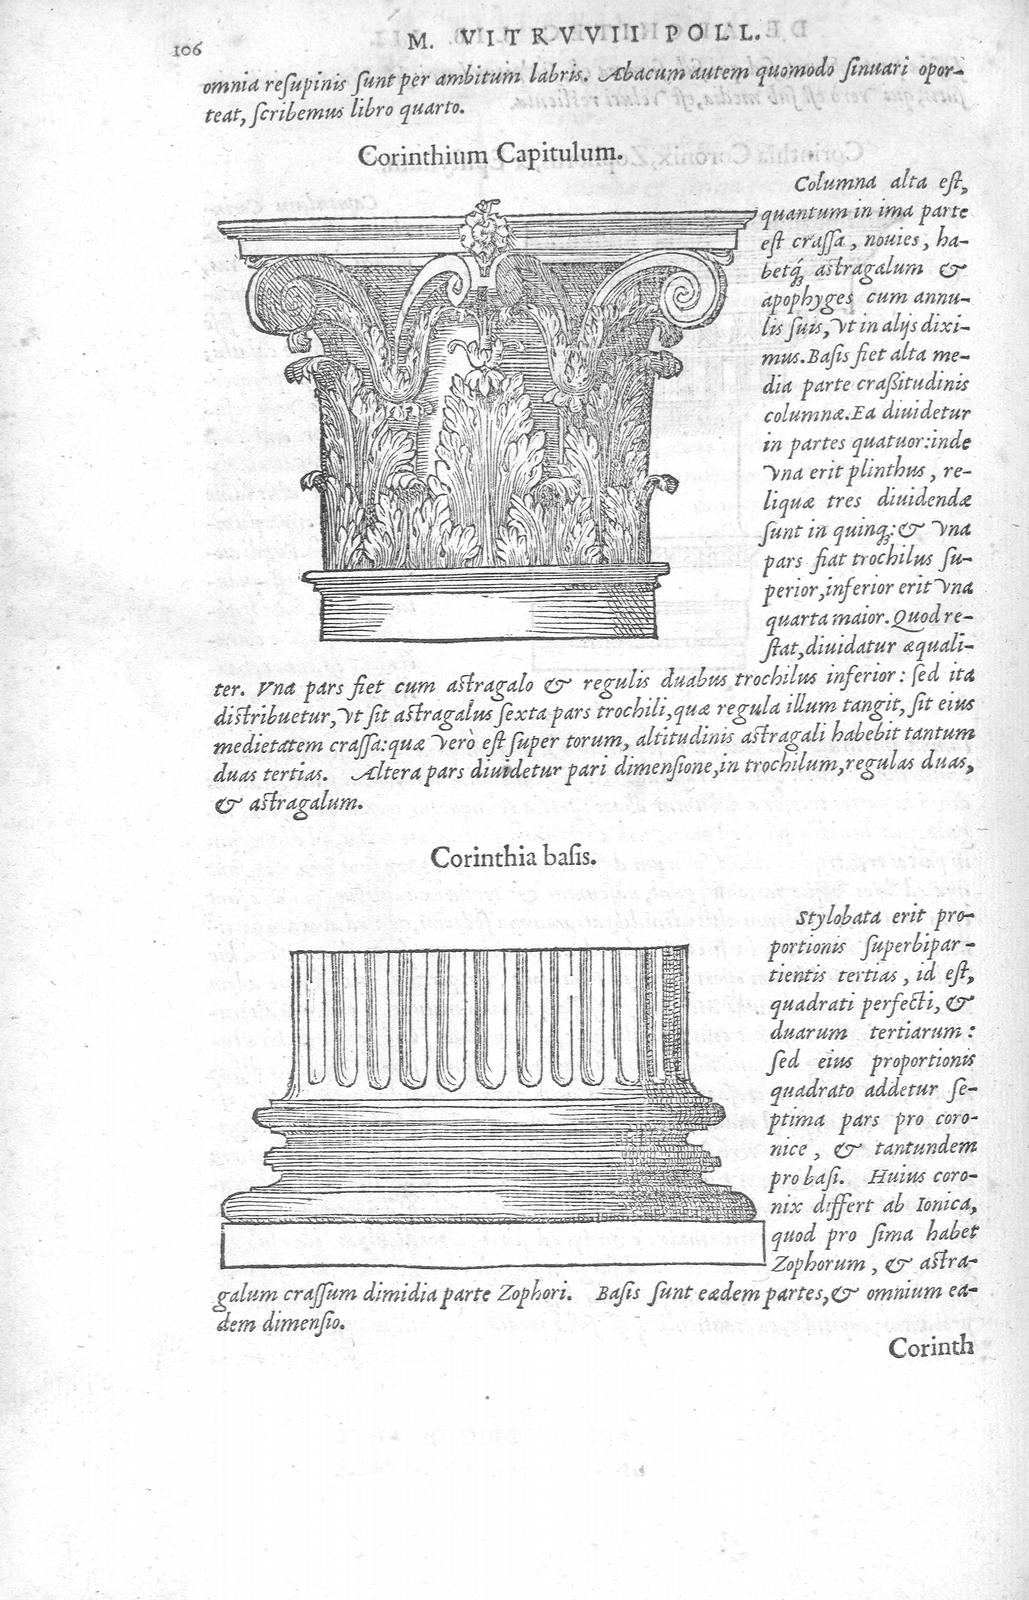 106
M. VITRVVII POLL.
omnia resupinis sunt per ambitum labris. Abacum autem quomodo sinuari opor-
teat, scribemus libro quarto.
Corinthium Capitulum.
Columna alta est,
quantum in ima parte
est crassa, nouies, ha-
betq́; astragalum &
apophyges cum annu-
lis suis, vt in alijs dixi-
mus. Basis fiet alta me-
dia parte craßitudinis
columnæ. Ea diuidetur
in partes quatuor: inde
vna erit plinthus, re-
liquæ tres diuidendæ
sunt in quinq;: & vna
pars fiat trochilus su-
perior, inferior erit vna
quarta maior. Quod re-
stat, diuidatur æquali-
ter. Vna pars fiet cum astragalo & regulis duabus trochilus inferior: sed ita
distribuetur, vt sit astragalus sexta pars trochili, quæ regula illum tangit, sit eius
medietatem crassa: quæ verò est super torum, altitudinis astragali habebit tantum
duas tertias. Altera pars diuidetur pari dimensione, in trochilum, regulas duas,
& astragalum.
Corinthia basis.
Stylobata erit pro-
portionis superbipar-
tientis tertias, id est,
quadrati perfecti, &
duarum tertiarum:
sed eius proportionis
quadrato addetur se-
ptima pars pro coro-
nice, & tantundem
pro basi. Huius coro-
nix differt ab Ionica,
quod pro sima habet
Zophorum, & astra-
galum crassum dimidia parte Zophori. Basis sunt eædem partes, & omnium ea-
dem dimensio.
Corinth